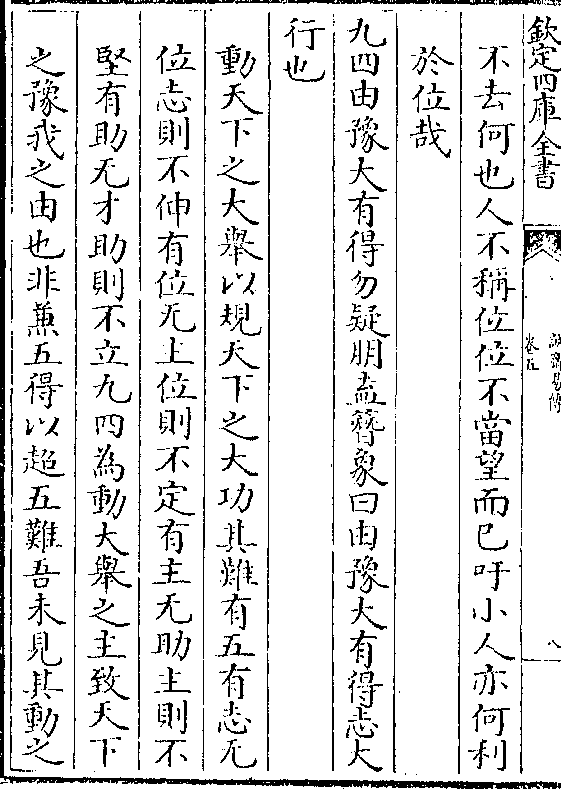 欽定四庫全書
誠齋易傳
卷五
八
不去何也人不稱位位不當望而已吁小人亦何利
於位哉
九四由豫大有得勿疑朋盍簪象曰由豫大有得志大
行也
動天下之大舉以規天下之大功其難有五有志无
位志則不伸有位无上位則不定有主无助主則不
堅有助无才助則不立九四為動大舉之主致天下
之豫我之由也非兼五得以超五難吾未見其動之